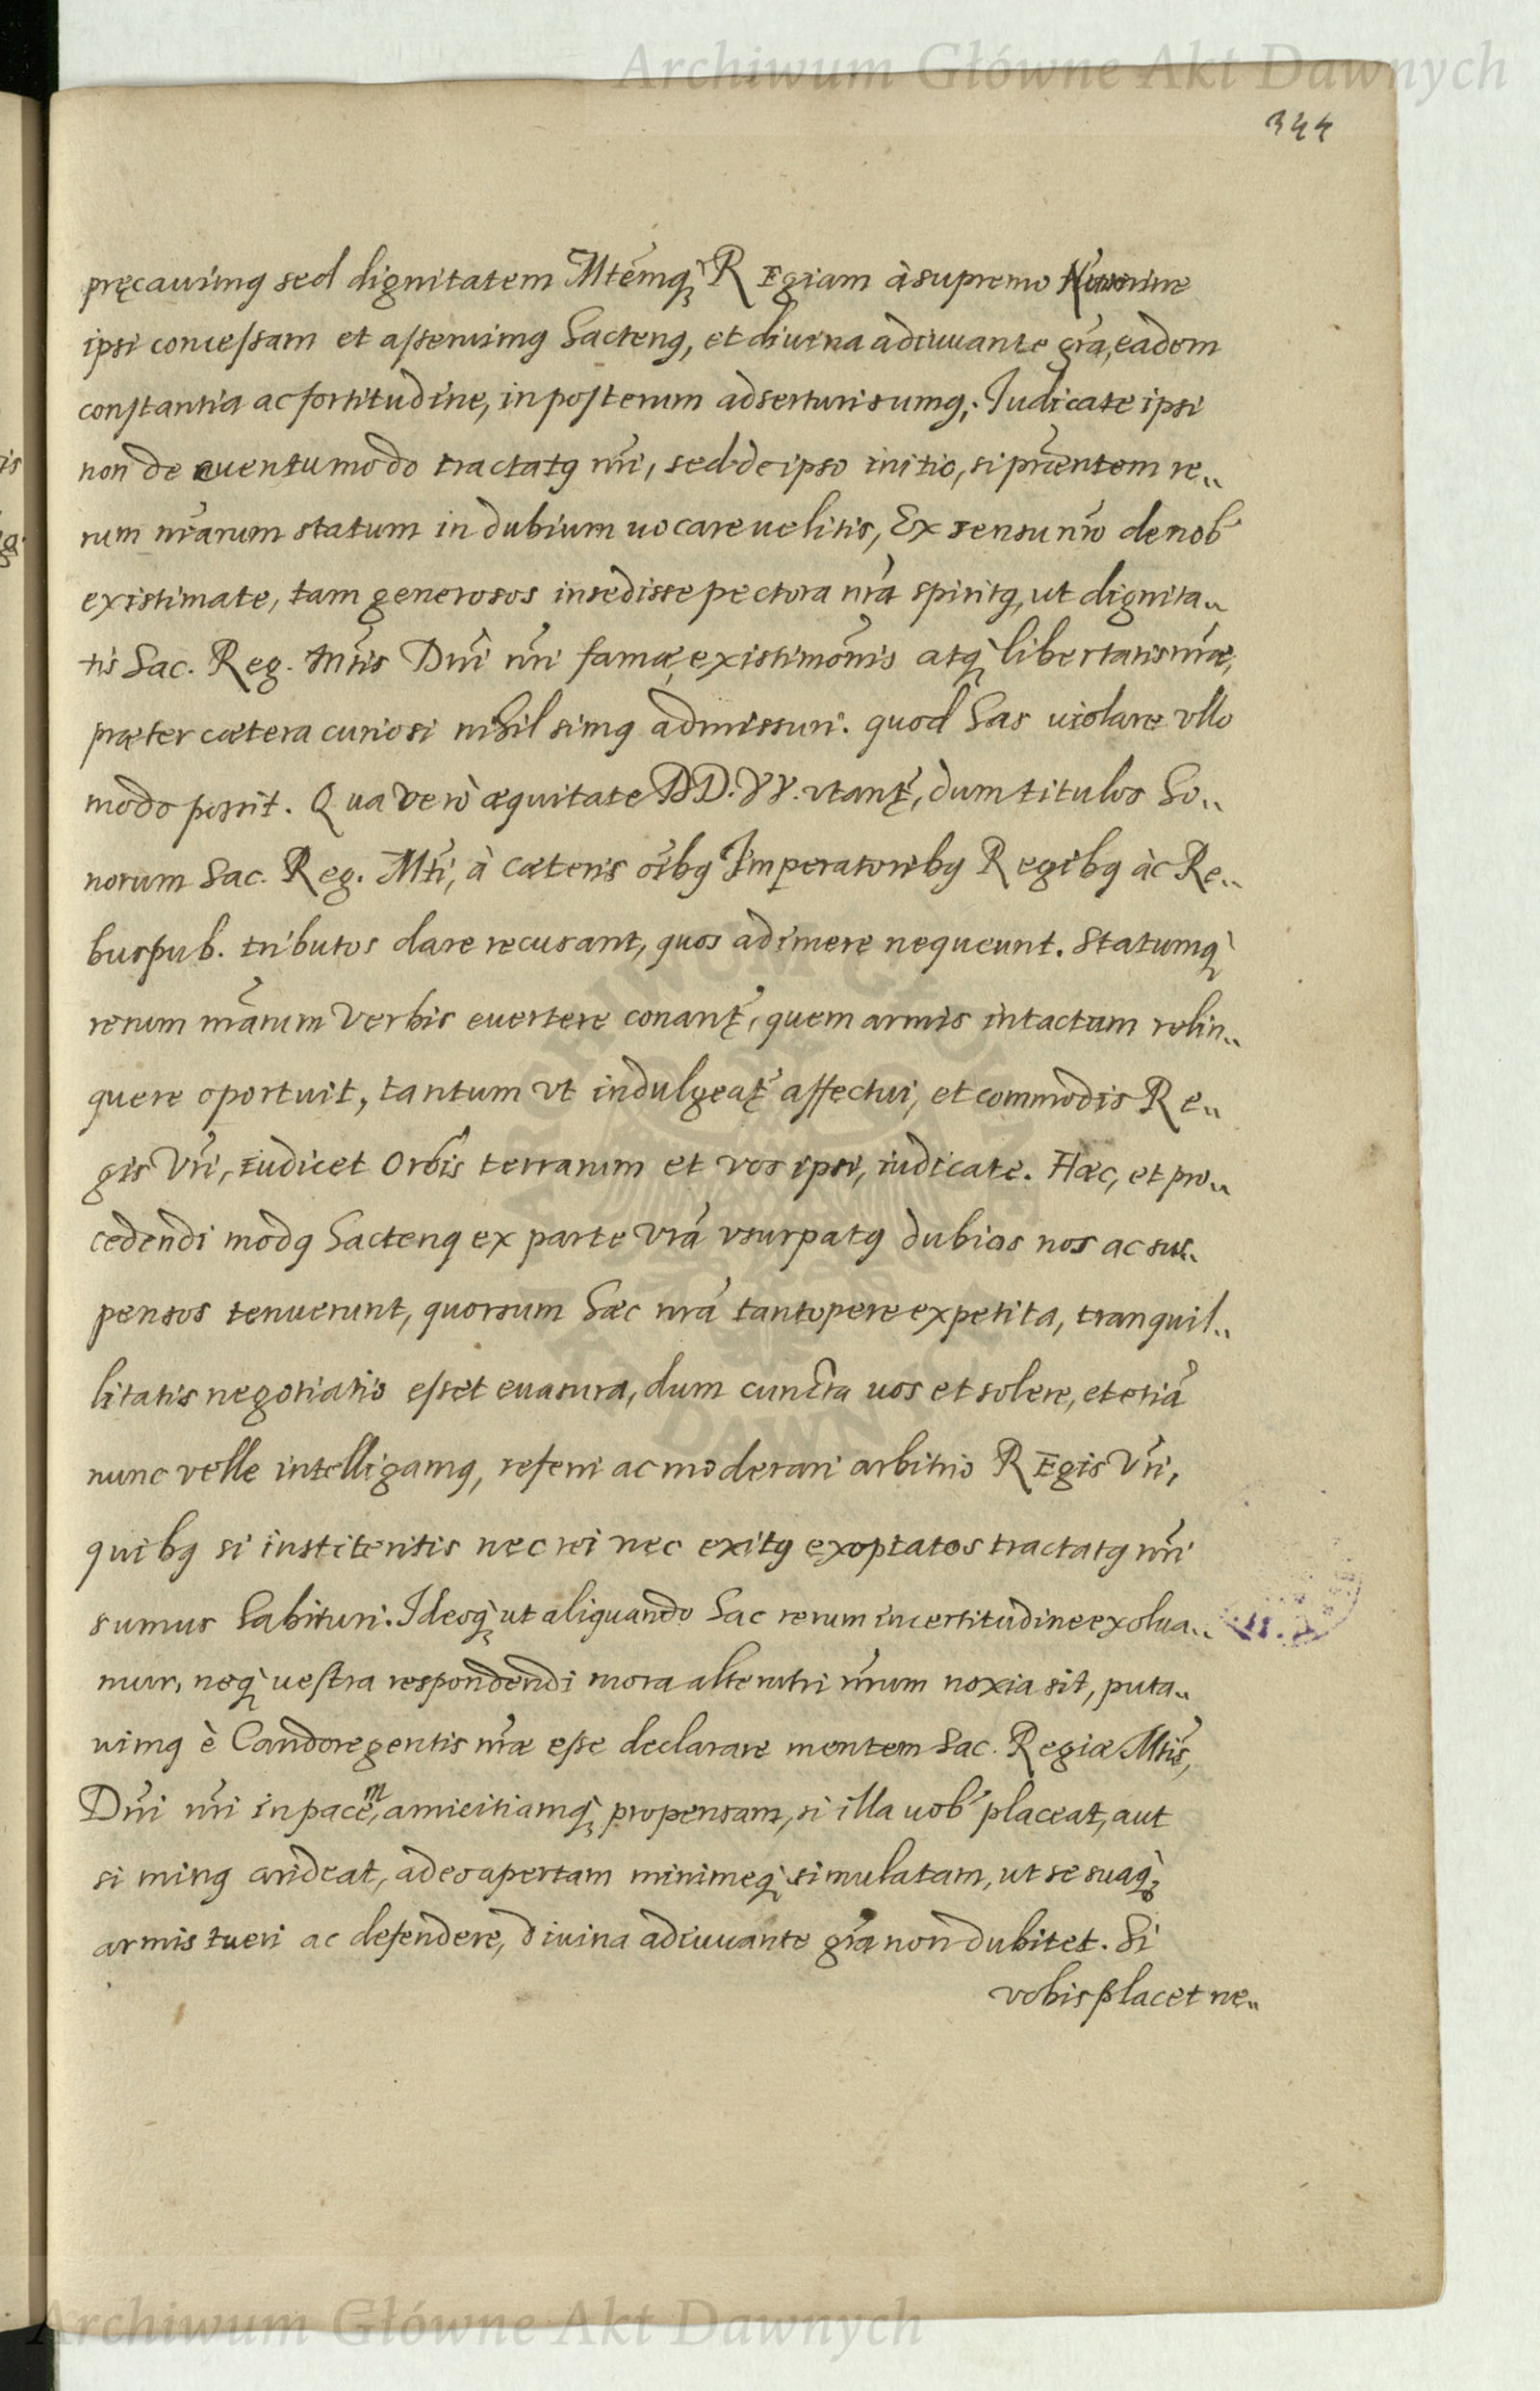 Archiwum Główne Akt Dawnych
344
pręcauimꝯ sed dignitatem Mtemq̨ REgiam à supremo Numine
ipsi concessam et asseruimꝯ hactenꝯ, et diuina adiuuante gr̃a, eadem
constantia ac fortitudine, in posterum adserturi sumꝯ. Iudicate ipsi
non de euentu modo tractatꝯ nr̃i, sed de ipso initio, si pr̃aentem re„
rum nr̃arum statum in dubium uocare uelitis, Ex sensu nr̃o de nob̃
existimate, tam generosos insedisse pectora nr̃a spiritꝯ, ut dignita„
tis Sac. Reg. Mtis Dñi nr̃i famæ, existimõnis atq̨ libertatis nr̃æ,
præter cætera curiosi nihil simꝯ admissuri. quod has uiolare vllo
modo possit. Qua verò æquitate DD. VV. utant̃, dum titulos ho„
norum Sac. Reg. Mti, à cæteris oĩbꝯ Imperatoribꝯ Regibꝯ àc Re„
buspub. tributos dare recusant, quos adimere nequeunt. Statumq̨
rerum nr̃arum verbis euertere conant̃, quem armis intactum relin„
quere oportuit, tantum vt indulgeat̃ affectui, et commodis Re„
gis Vr̃i, iudicet Orbis terrarum et vos ipsi, iudicate. Hæc, et pro„
cedendi modꝯ hactenꝯ ex parte vr̃a vsurpatꝯ dubios nos ac sus„
pensos tenuerunt, quorsum hæc nr̃a tantopere expetita, tranquil„
litatis negotiatio esset euasura, dum cuncta uos et solere, et etiã
nunc velle intelligamꝯ, referri ac moderari arbitrio REgis Vr̃i,
quibꝯ si institeritis nec rei nec exitꝯ exoptatos tractatꝯ nr̃i
sumus habituri. Ideoq̨ ut aliquando hac rerum incertitudine exolua„
mur, neq̨ uestra respondendi mora alterutri nr̃um noxia sit, puta„
uimꝯ è Candore gentis nr̃æ esse declarare mentem Sac. Regiæ Mtis,
Dñi nr̃i in pacem, amicitiamq̨ propensam, si illa uob̃ placeat, aut
si minꝯ arideat, adeo apertam minimeq̨ simulatam, ut se suaq̨
armis tueri ac defendere, diuina adiuuante gr̃a non dubitet. Si
vobis placet ne„
Archiwum Główne Akt Dawnych